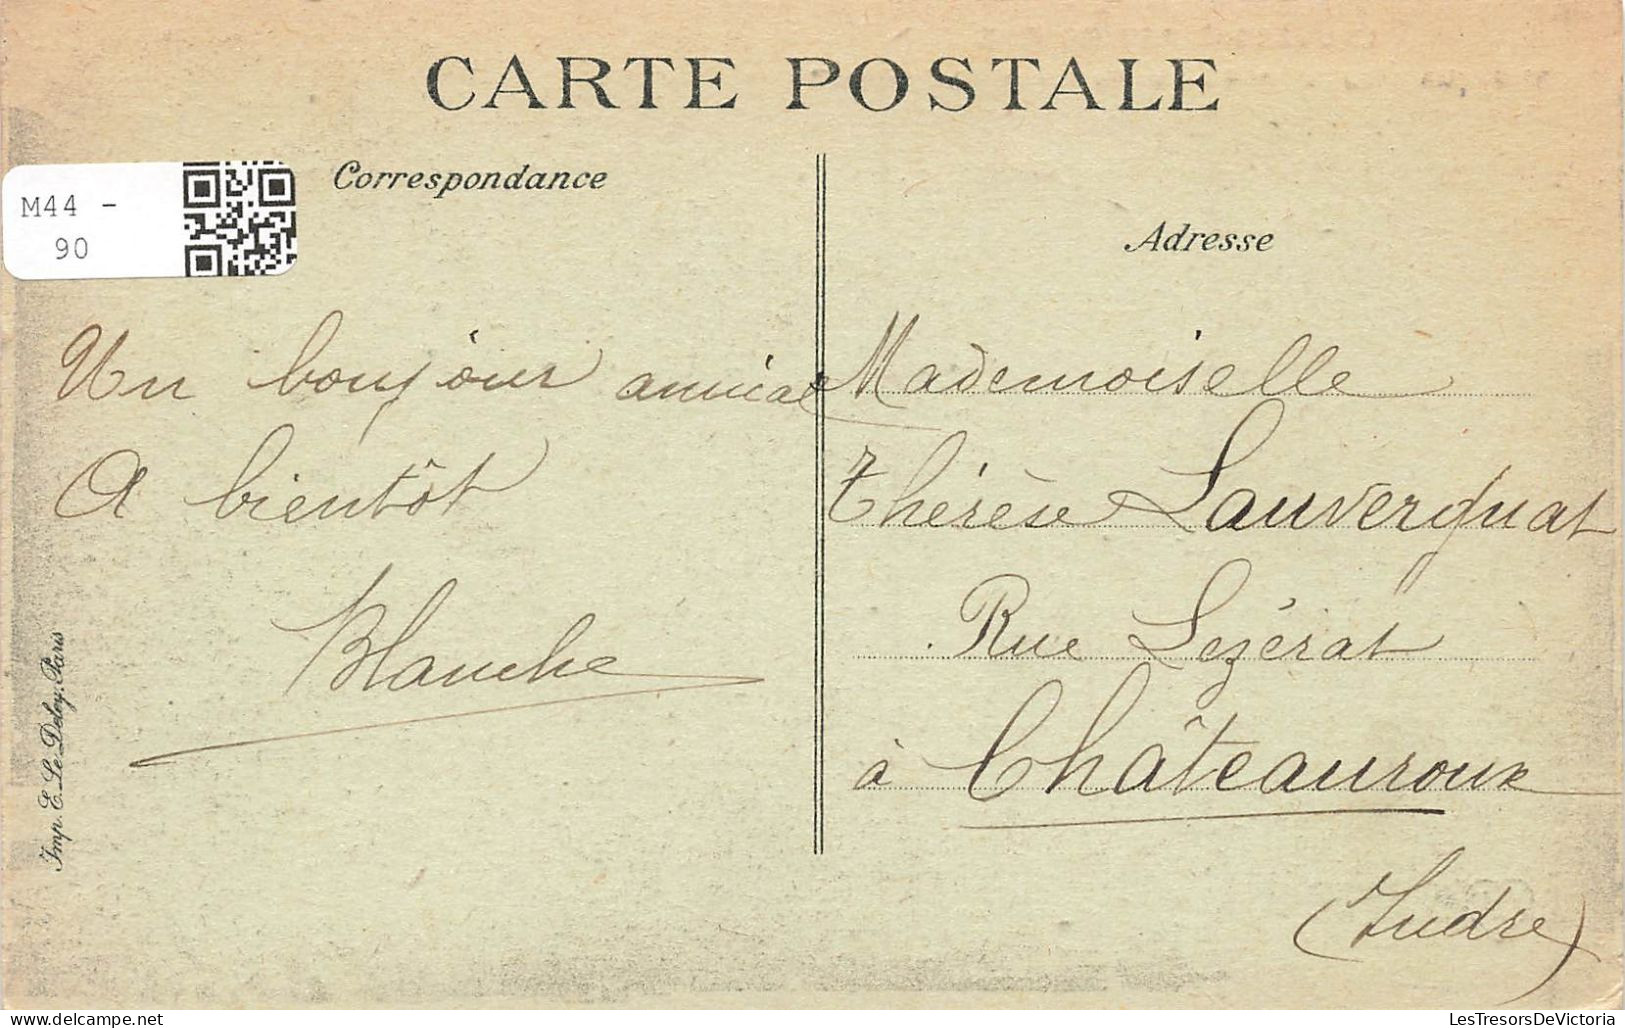 CARTE POSTALE
Correspondance
M44 -
90
Un bonjour amical
A bientôt
Blanche
Imp. E. Le Deley, Paris
Adresse
Mademoiselle
Thérèse Lauvergnat
Rue Lezérat
à Châteauroux
(Indre)
LesTresorsDeVictoria